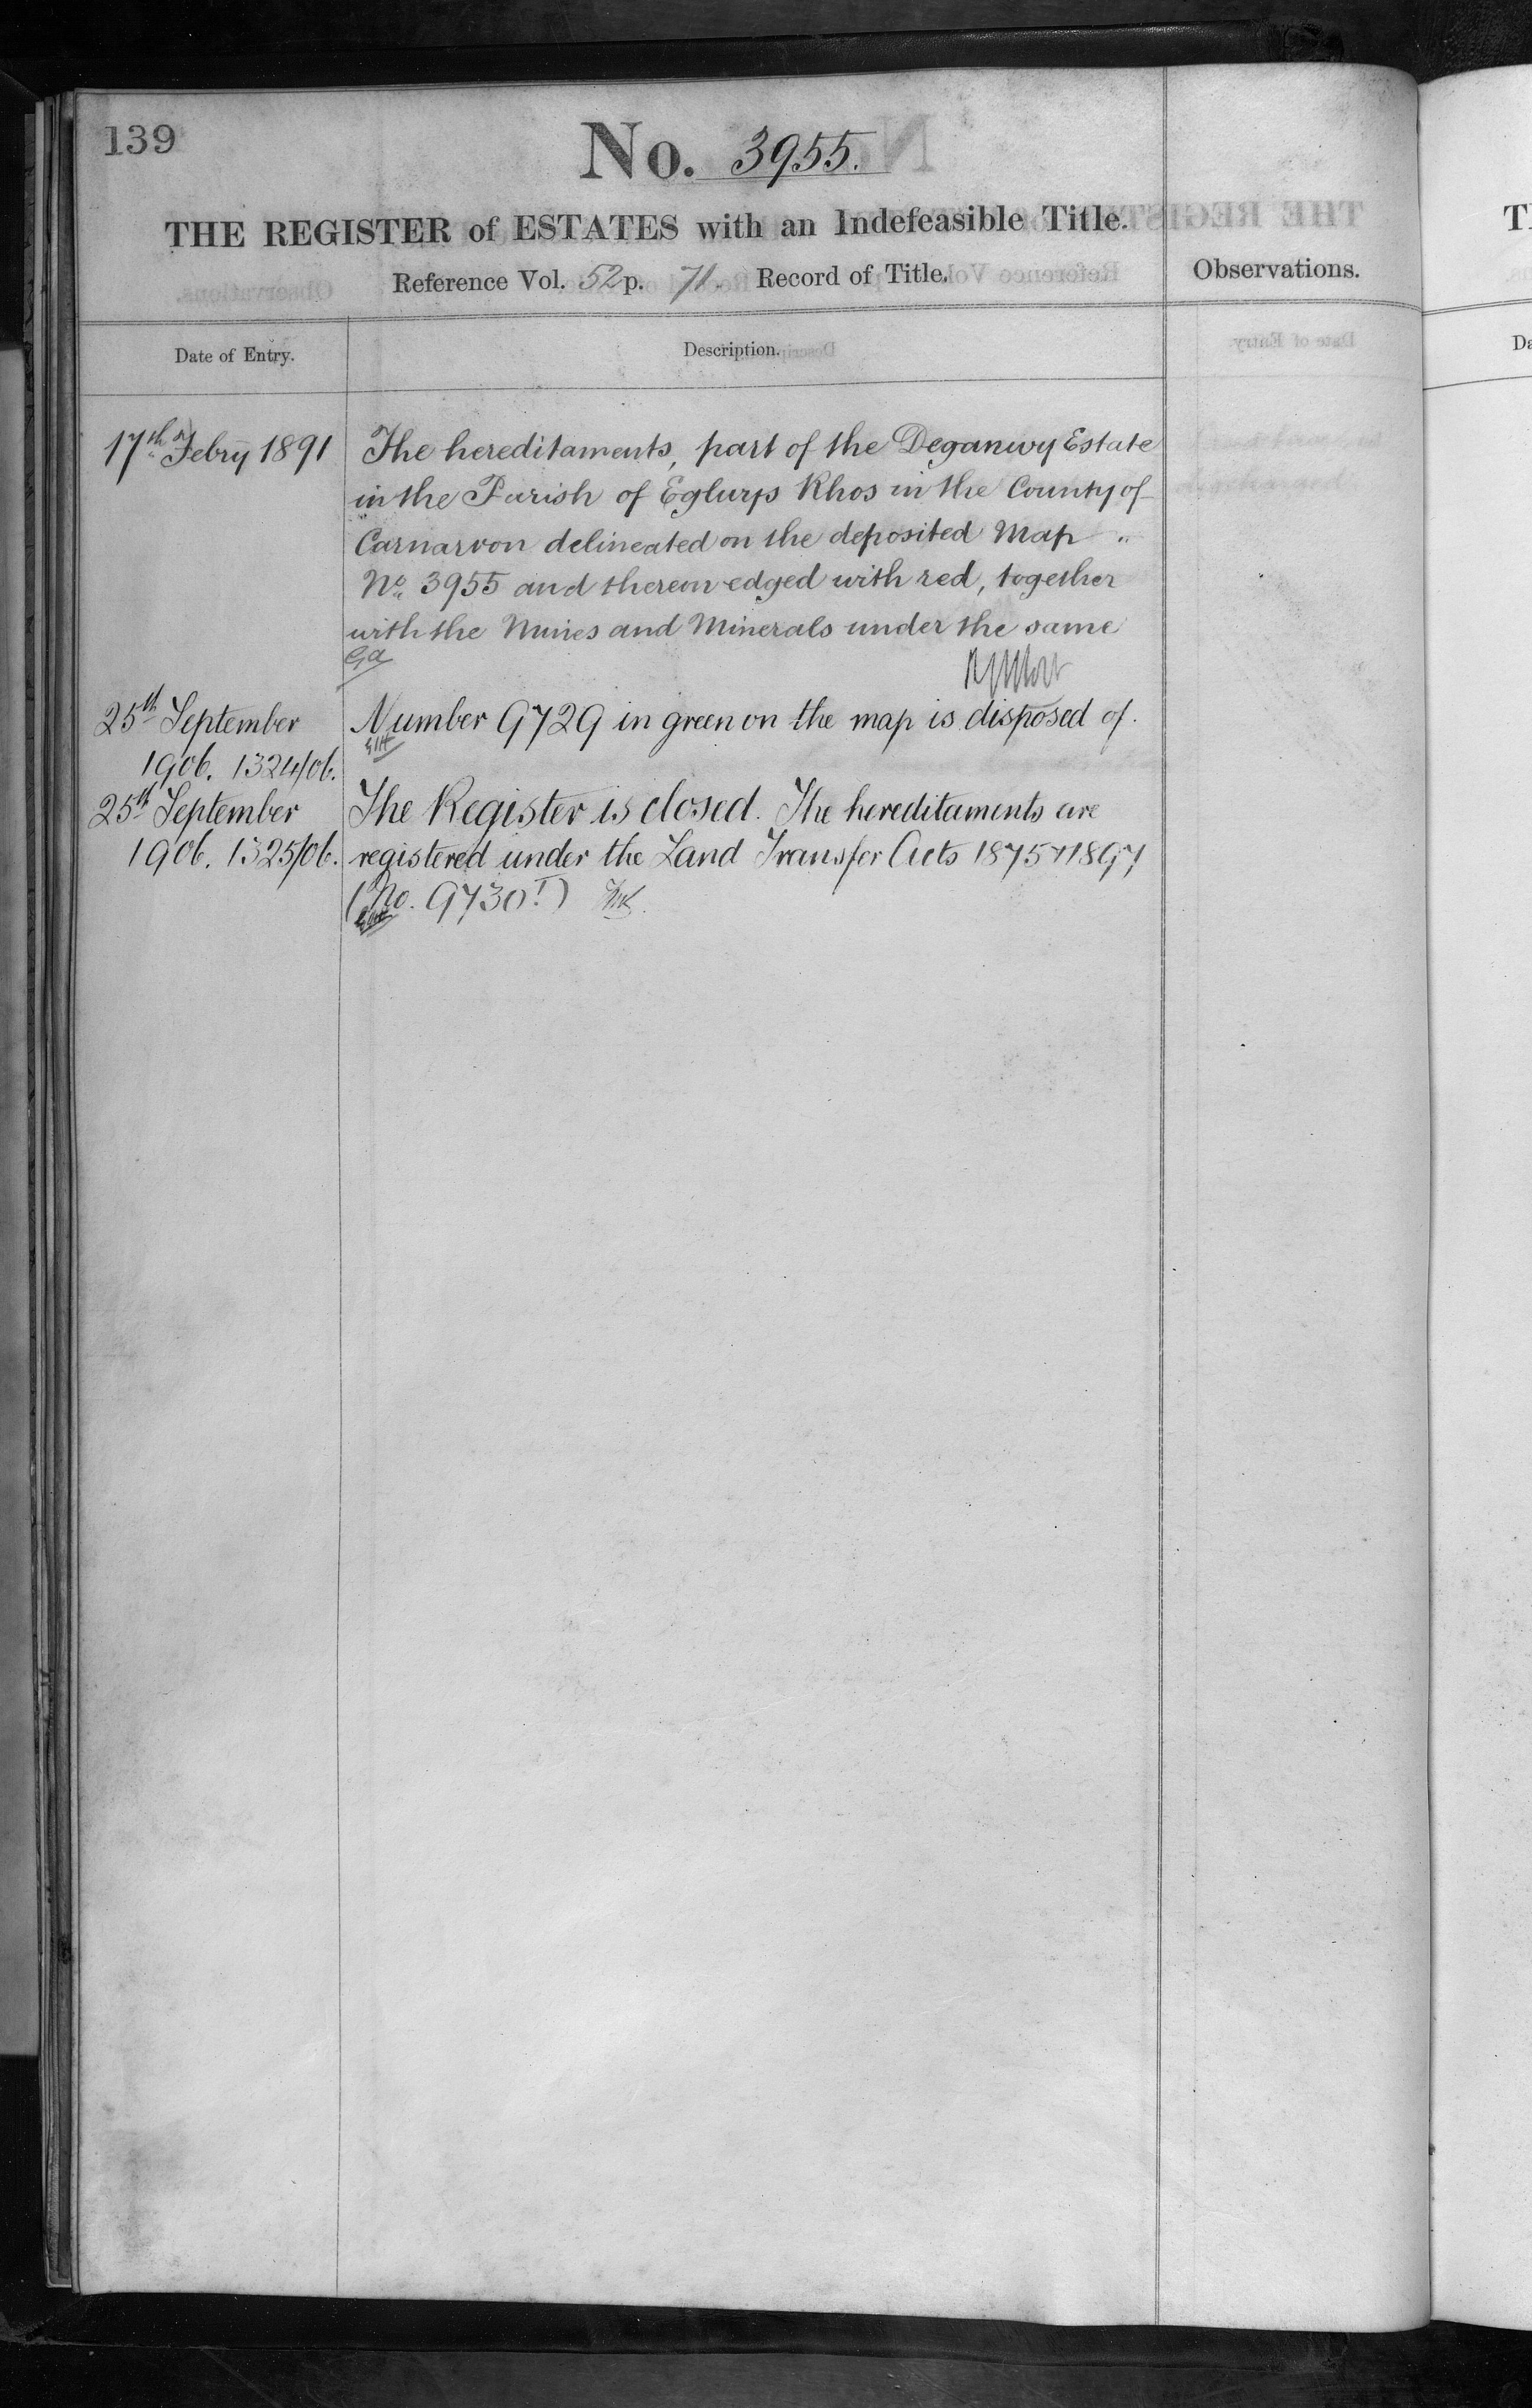 139
No. 3955.
THE REGISTER of ESTATES with an Indefeasible Title.
Reference Vol. 52 p. 71. Record of Title.
Observations.
Date of Entry.
Description.
17th Febry 1891
The hereditaments, part of the Deganwy Estate
in the Parish of Eglwys Rhos in the County of
Carnarvon delineated on the deposited Map
No. 3955 and thereon edged with red, together
with the Mines and Minerals under the same
25th September
1906. 1324/06.
Number 9729 in green on the map is disposed of.
25th September
1906. 1325/06.
The Register is closed. The hereditaments are
registered under the Land Transfer Acts 1875 + 1897
(No. 9730!)